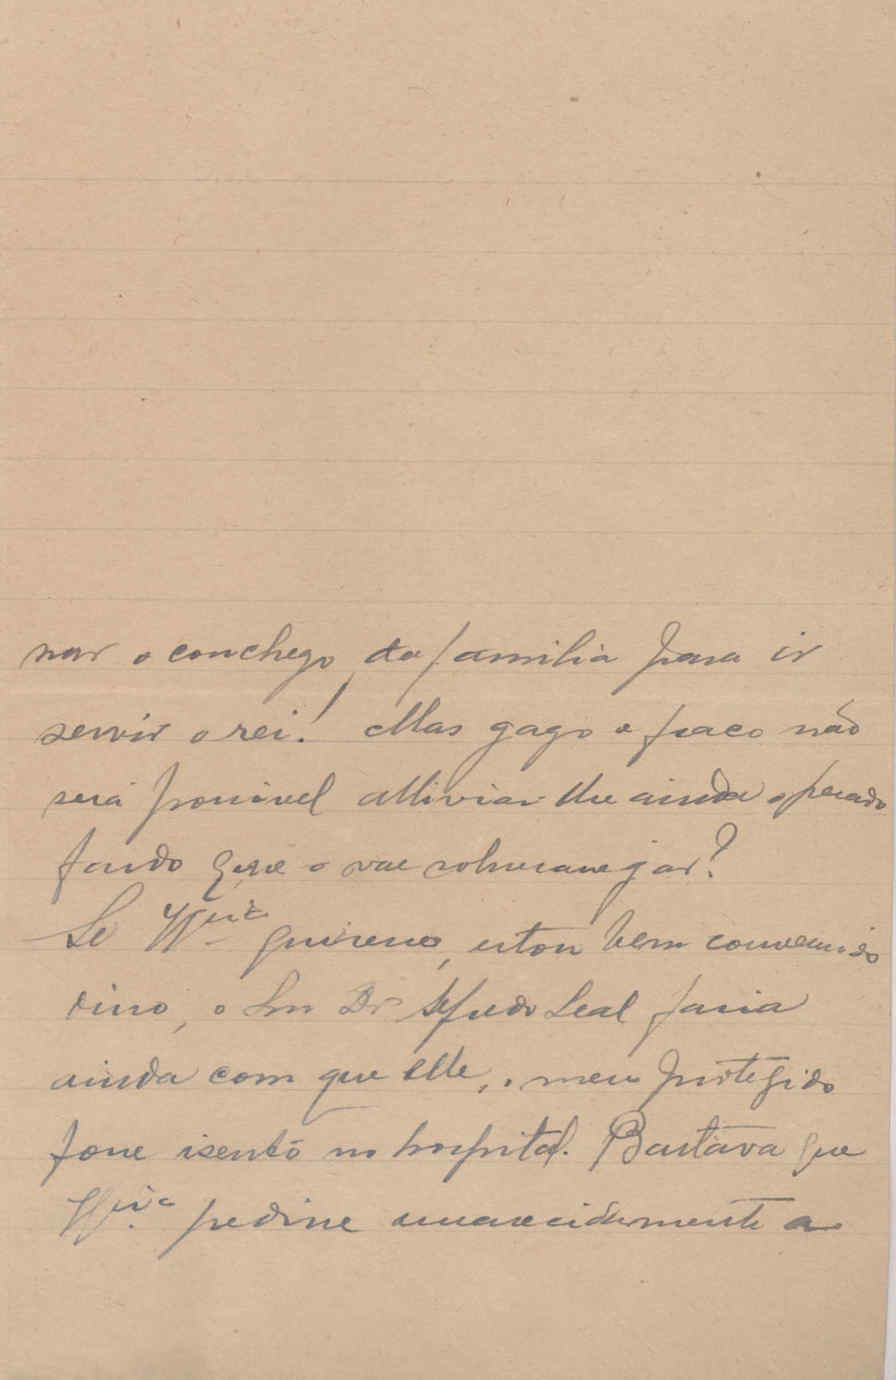 nar o conchego da familia para ir
servir o rei! Mas gago e fraco não
será possivel alliviar-lhe ainda o pesado
fardo que o vae sobrecarregar?
Se V. Ex.cia quizesse, estou bem convencido
disso, o Snr Dr Leal faria
ainda com que elle, o meu protegido
fosse isento no hospital. Bastava que
V. Ex.cia pedisse encarecidamente a